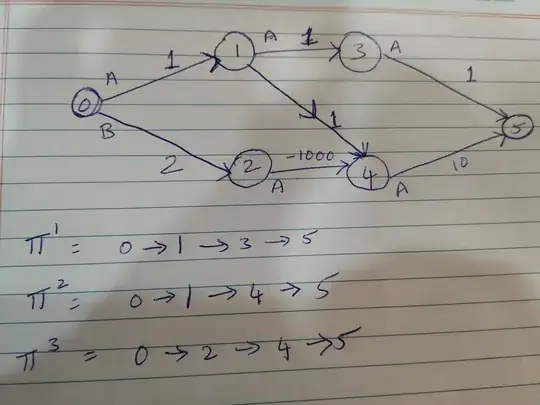 A 1 1 A 1 3 A
0 1 1 5
B 2 2 -1000 4 10
A A
π¹ = 0 → 1 → 3 → 5
π² = 0 → 1 → 4 → 5
π³ = 0 → 2 → 4 → 5